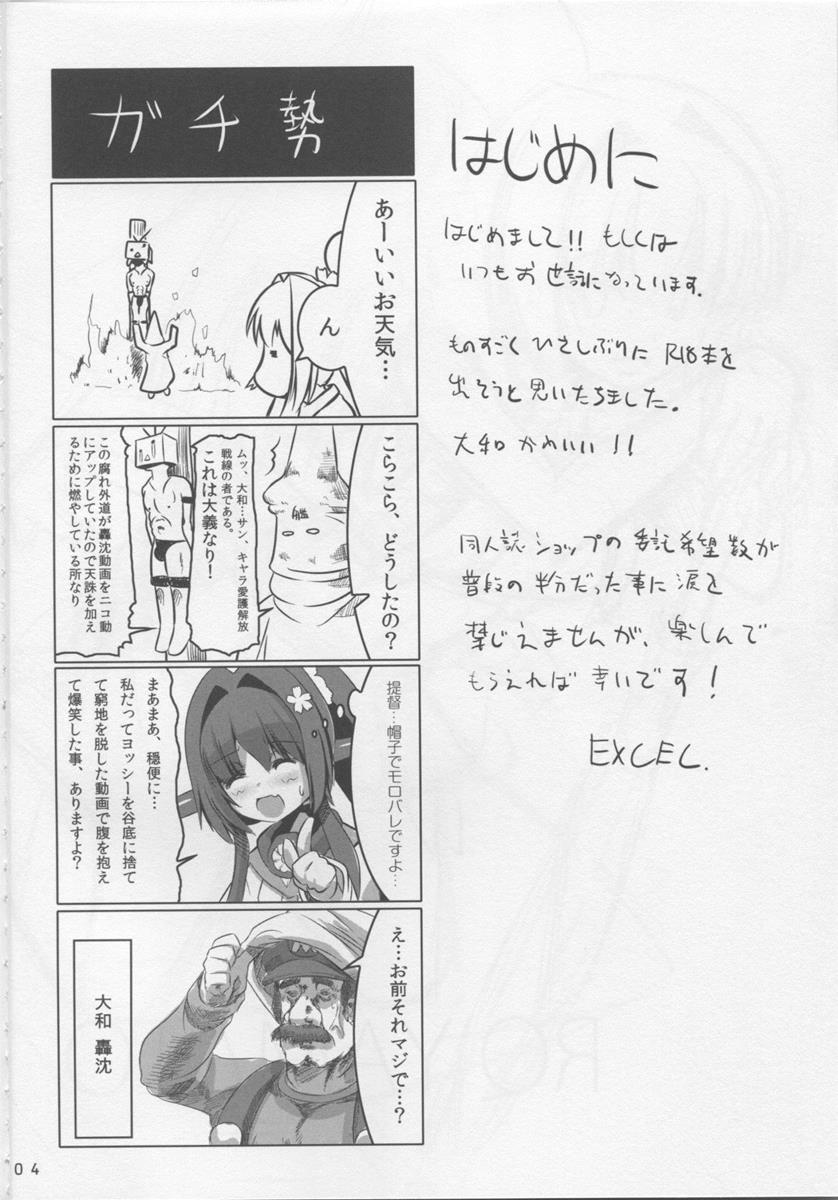 はじめに
はじめまして!! もしくは
いつもお世話になっています.
ものすごくひさしぶりに R18本を
出そうと思いたちました。
大和かわいい!!
同人誌ショップの委託希望数が
普段の半分だった事に涙を
禁じえませんが、楽しんで
もらえれば幸いです!
EXCEL.
ガチ勢
あーいいお天気…
ん
こらこら、どうしたの?
艦
ムッ、大和…サン、キャラ愛護解放
戦線の者である。
これは大義なり!
この腐れ外道が轟沈動画をニコ動
にアップしていたので天誅を加え
るために燃やしている所なり
提督…帽子でモロバレですよ…
まあまあ、穏便に…
私だってヨッシーを谷底に捨て
て窮地を脱した動画で腹を抱え
て爆笑した事、ありますよ?
え…お前それマジで…?
大和 轟沈
04